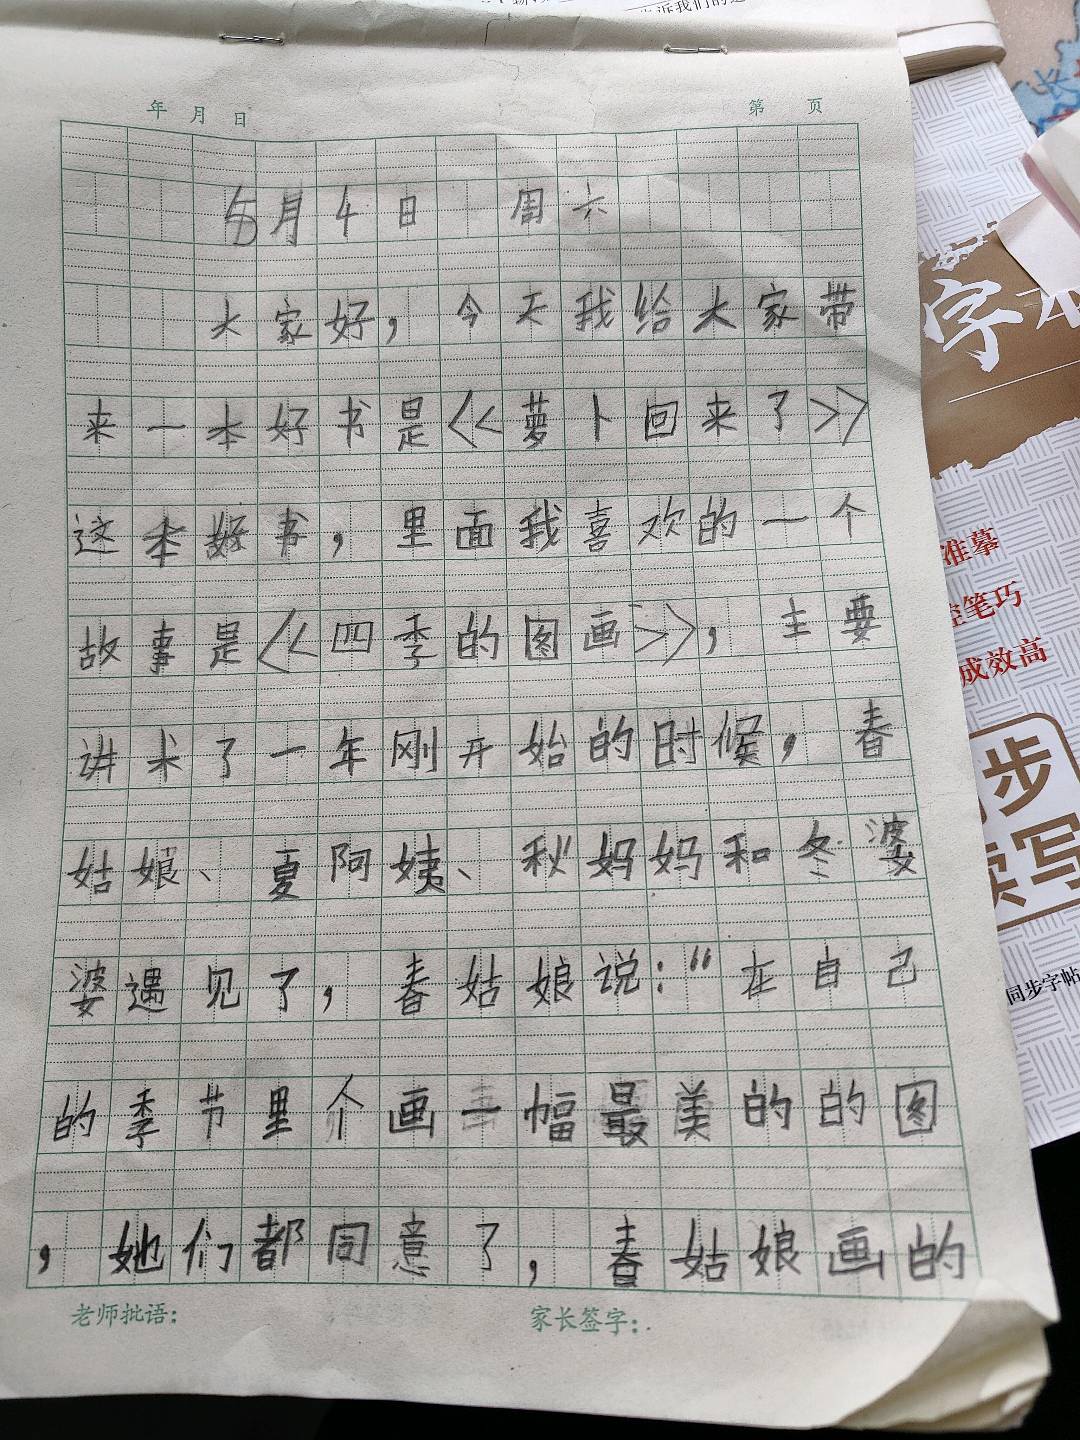 告诉我们的
年 月 日
第 页
5月4日 周六
大家好，今天我给大家带
来一本好书是《萝卜回来了》
这本好书，里面我喜欢的一个
故事是《四季的图画》，主要
讲术了一年刚开始的时候，春
姑娘、夏阿姨、秋妈妈和冬婆
婆遇见了，春姑娘说：“在自己
的季节里介画一幅最美的的图
，她们都同意了，春姑娘画的
老师批语：
家长签字：
字本
准摹
控笔巧
成效高
同步
读写
同步字帖